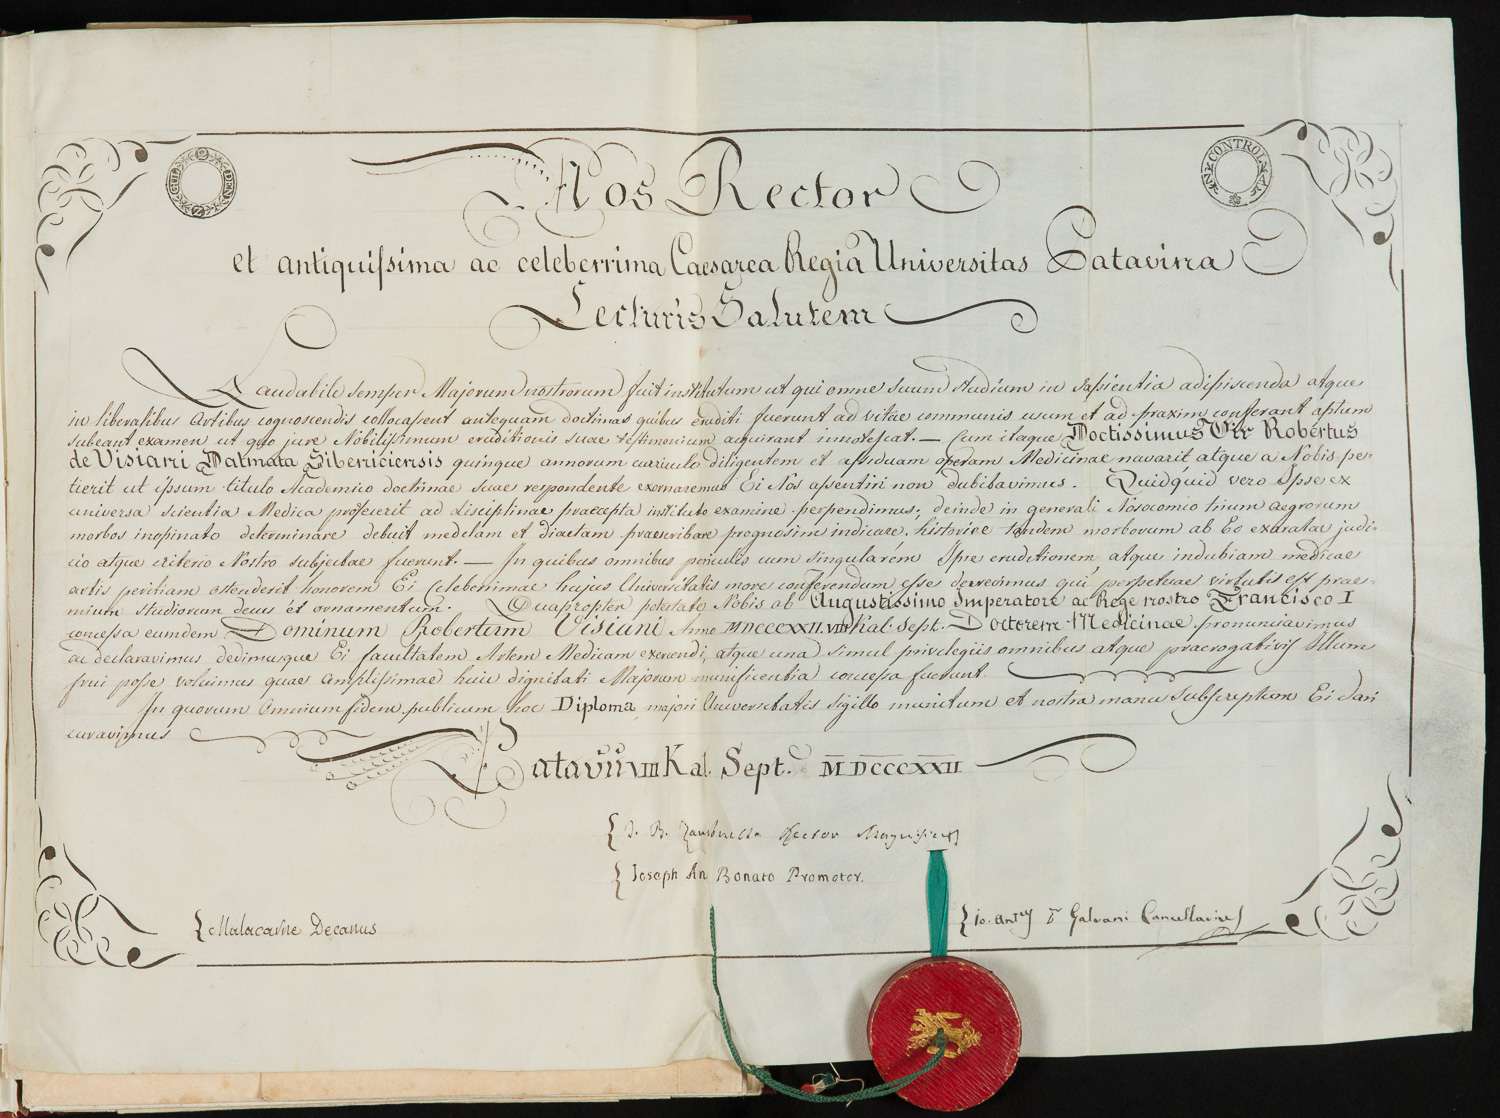 2 GULDEN 2
CONTROL
Nos Rector
et antiquissima ac celeberrima Caesarea Regia Universitas Patavina
Lecturis Salutem
Laudabile semper Majorum nostrorum fuit institutum ut qui omne suum studium in sapientia adipiscenda atque
in liberalibus Artibus cognoscendis collocassent antequam doctrinas quibus eruditi fuerunt ad vitae communis usum et ad praxim conferant aptum
subeant examen ut quo jure Nobilissimum eruditionis suae testimonium acquirant innotescat. — Cum itaque Doctissimus Vir Robertus
de Visiani Dalmata Sibericiensis quinque annorum curriculo diligentem et assiduam operam Medicinae navarit atque a Nobis pe-
tierit ut ipsum titulo Academico doctrinae suae respondente exornaremus Ei Nos assentiri non dubitavimus. Quidquid vero Ipse ex
universa scientia Medica profecerit ad disciplinae praecepta instituto examine perpendimus; deinde in generali Nosocomio trium aegrorum
morbos inopinato determinare debuit medelam et diaetam praescribere prognosim indicare, historiae tandem morborum ab Eo exaratae judi-
cio atque criterio Nostro subjectae fuerunt. — In quibus omnibus periculis cum singularem Ipse eruditionem, atque indubiam medicae
artis peritiam ostenderit honorem Ei Celeberrimae hujus Universitatis more conferendum esse decrevimus qui perpetuae virtutis est prae-
mium studiorum decus et ornamentum. Quapropter potestate Nobis ab Augustissimo Imperatore ac Rege nostro Francisco I
concessa eumdem Dominum Robertum Visiani Anno MDCCCXXII. VIII Kal. Sept. Doctorem Medicinae pronunciavimus
ac declaravimus dedimusque Ei facultatem Artem Medicam exercendi, atque una simul privilegiis omnibus atque praerogativis Illum
frui posse voluimus quae amplissimae huic dignitati Majorum munificentia concessa fuerunt.
In quorum Omnium fidem publicum hoc Diploma, majori Universitatis Sigillo munitum et nostra manu subscriptum Ei dari
curavimus
Patavii VIII Kal. Sept. MDCCCXXII
J. B. Rector Magnificus
Joseph An Bonato Promotor.
Malacarne Decanus
Io. Ant. Galvani Cancellarius